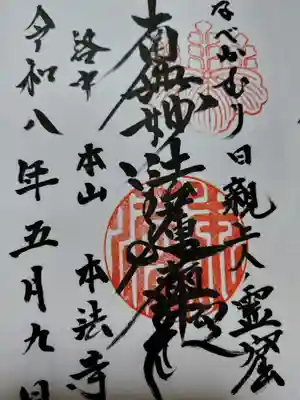 なべかむり日親上人霊窟
南無妙法蓮華経
洛中 本山 本法寺
令和八年五月九日